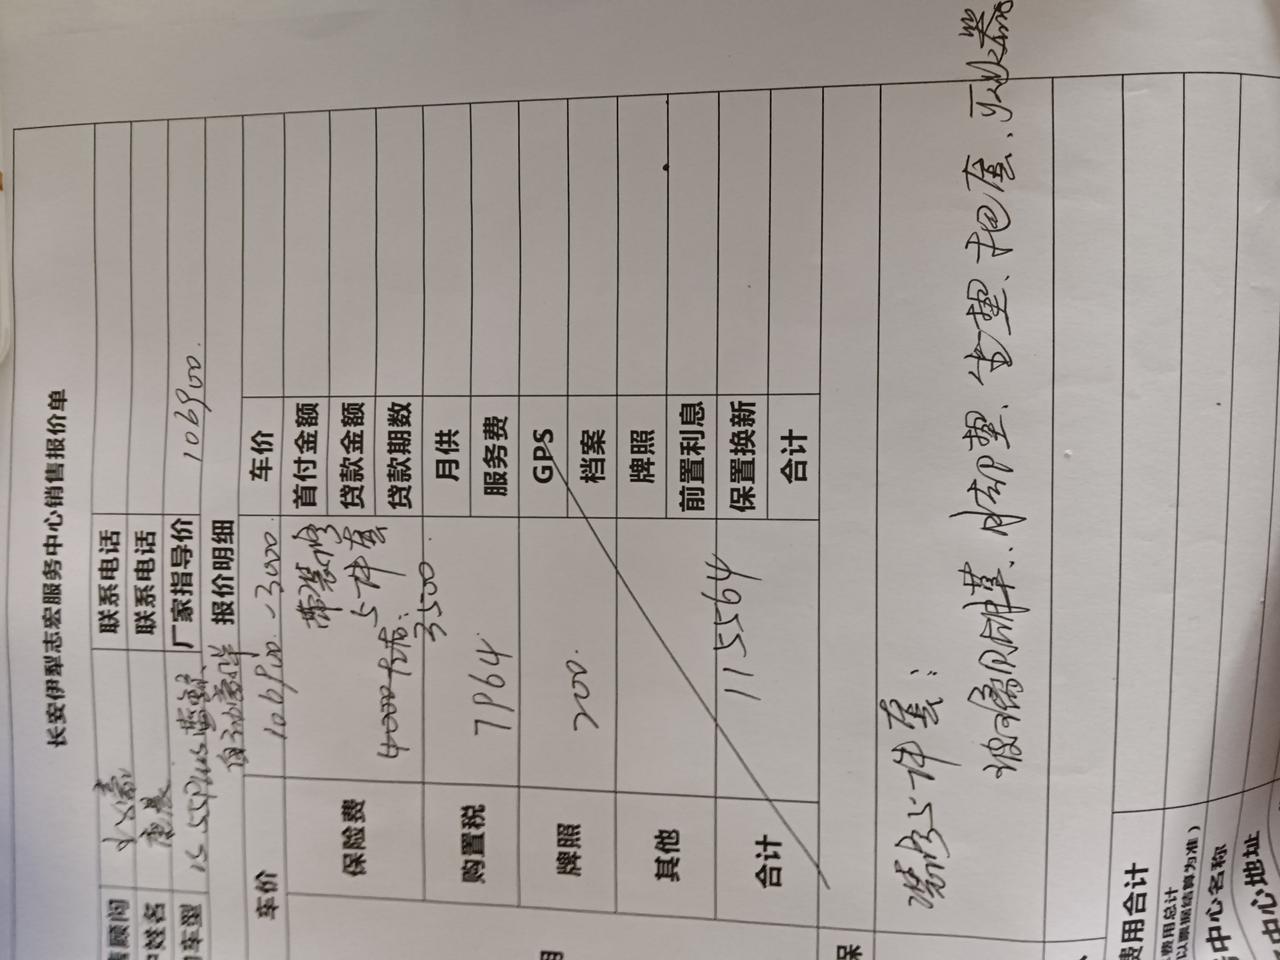 长安伊犁志宏服务中心销售报价单
售顾问 联系电话
户姓名 康晨 联系电话
车型 1.5 55Plus 厂家指导价 106900.
自动豪华 报价明细
车价 106900.-3000 车价
保险费 带装修 首付金额
5件套 贷款金额
4000左右: 贷款期数
3500 月供
购置税 7964 服务费
GPS
牌照 200. 档案
其他 牌照
前置利息
合计 115564 保置换新
合计
保
装修5件套:
玻璃保护膜、后备垫、坐垫、把套、灭火器
费用合计
费用总计
以票据结算为准)
中心名称
中心地址